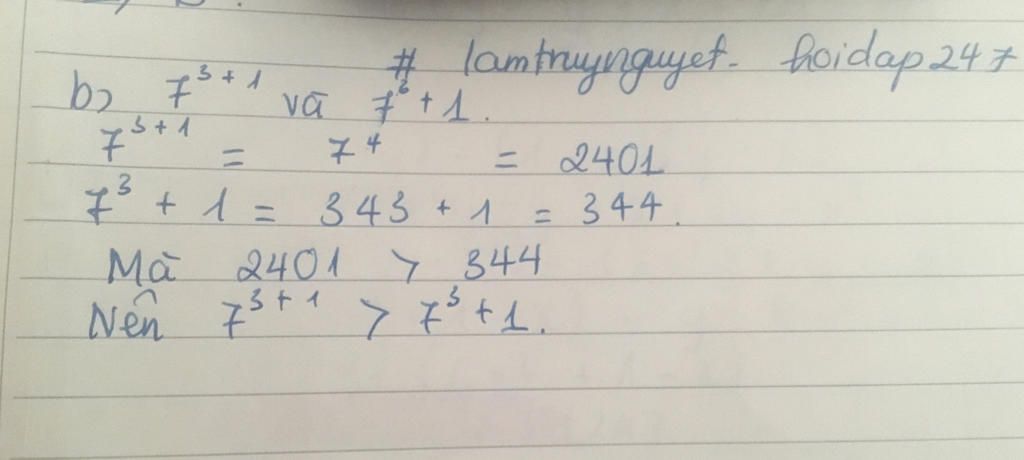 # lamtruynguyet- hoidap247
b) 7³⁺¹ và 7³ + 1.
7³⁺¹ = 7⁴ = 2401
7³ + 1 = 343 + 1 = 344.
Mà 2401 > 344
Nên 7³⁺¹ > 7³ + 1.